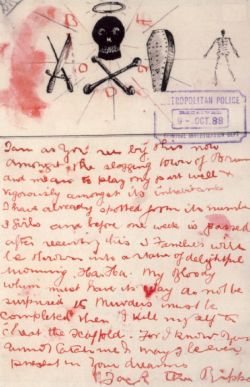 METROPOLITAN POLICE
9-OCT.88
CRIMINAL INVESTIGATION DEPT
I am as you see by this now
amongst the slogging town of
and mean to play my part well &
vigorously amongst its inhabitants
I have already spotted from its number
3 Girls and before one week is passed
after receiving this 3 Families will
be thrown into a state of delightful
mourning. Ha. Ha. My Bloody
whim must have its way do not be
surprised 15 Murders must be
completed then I kill myself to
cheat the Scaffold. For I know you
cannot catch me & may I be ever
present in your dreams
Jack the Ripper